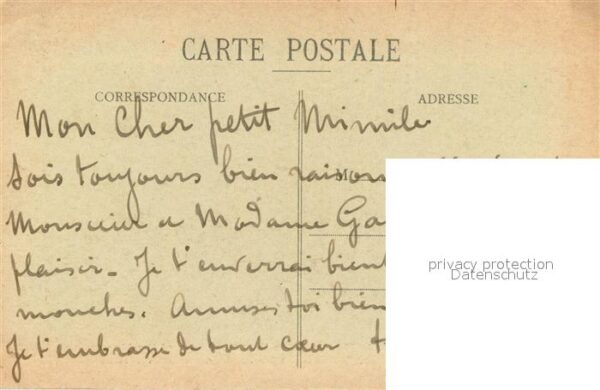 CARTE POSTALE
CORRESPONDANCE
ADRESSE
Mon Cher petit Mimile
Sois toujours bien raison
Monsieur et Madame Ga
plaisir. Je t'enverrai bient
mouches. Amuses toi bien
Je t'embrasse de tout cœur
privacy protection
Datenschutz